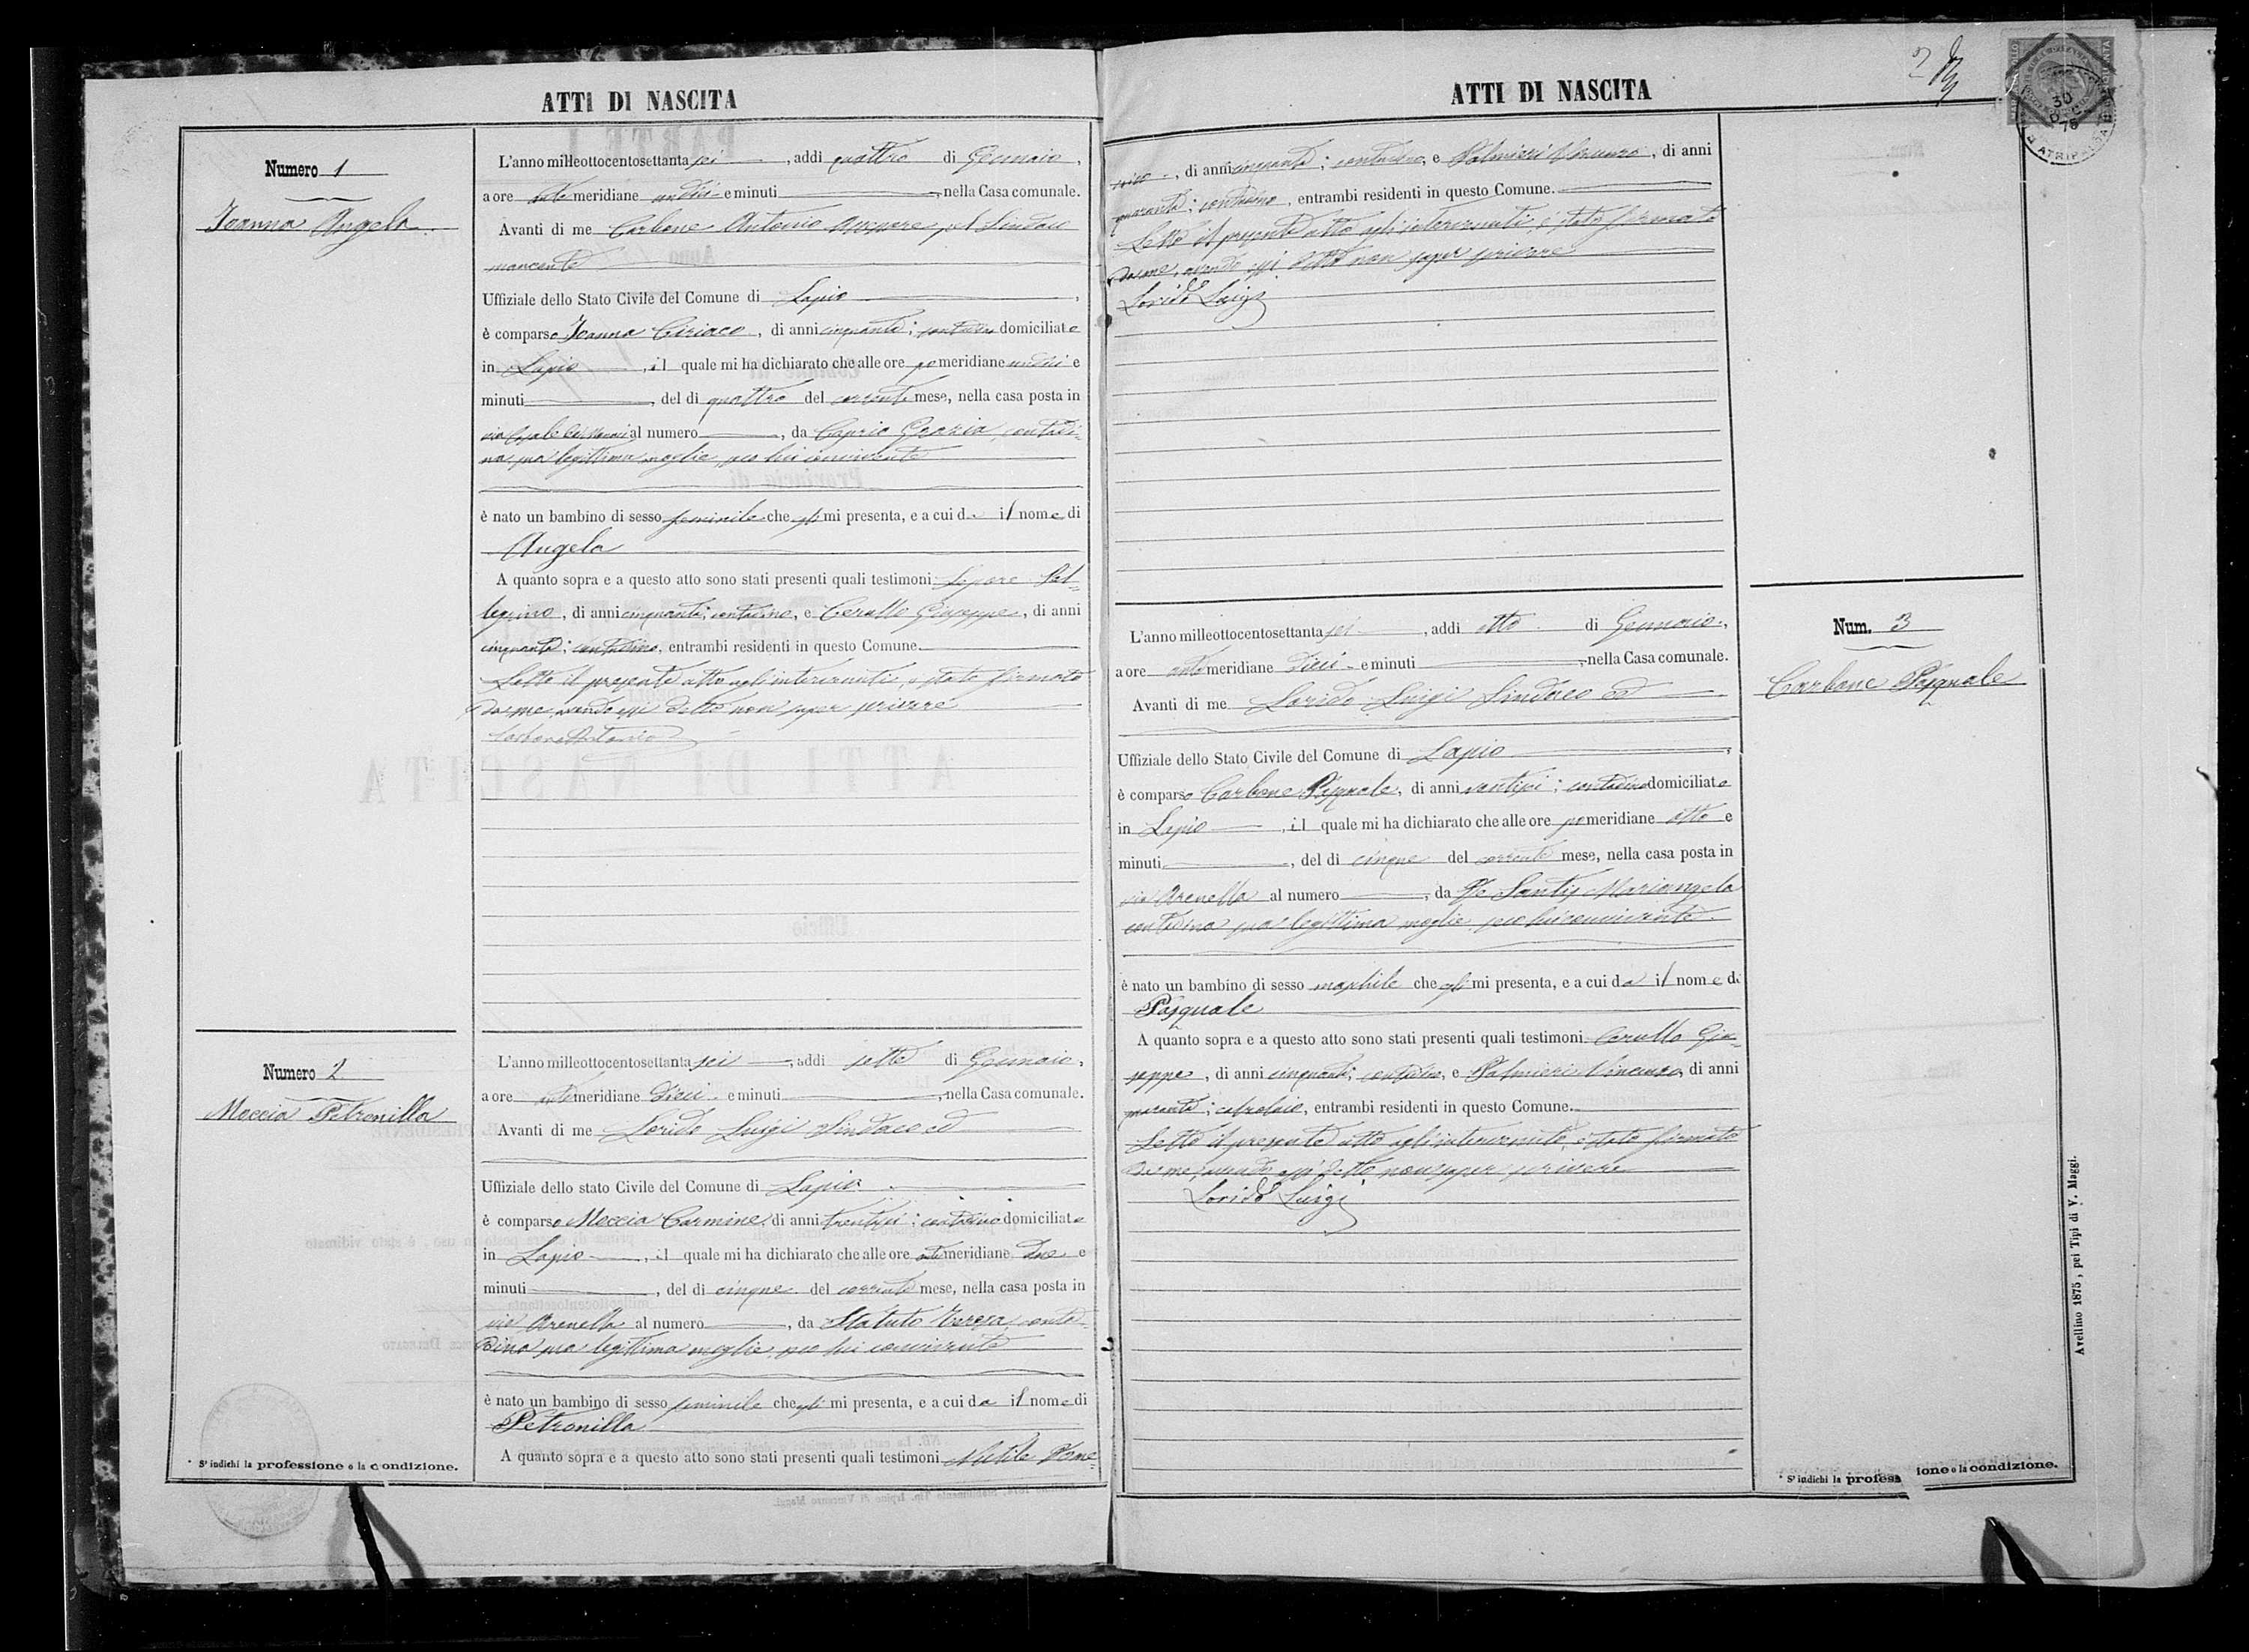 ATTI DI NASCITA
Numero 1
Ioanna Angela
L'anno milleottocentosettanta sei, addì quattro di Gennaio,
a ore ante meridiane undici e minuti, nella Casa comunale.
Avanti di me Carbone Antonio Assessore pel Sindaco
mancante
Uffiziale dello Stato Civile del Comune di Lapio,
è comparso Ioanna Ciriaco, di anni cinquanta; contadino domiciliato
in Lapio, il quale mi ha dichiarato che alle ore pomeridiane undici e
minuti, del dì quattro del corrente mese, nella casa posta in
via Casale al numero, da Caprio Grazia, contadi-
na sua legittima moglie, seco lui convivente
è nato un bambino di sesso feminile che egli mi presenta, e a cui dà il nome di
Angela
A quanto sopra e a questo atto sono stati presenti quali testimoni Lepore Pel-
legrino, di anni cinquanta; contadino, e Cerullo Giuseppe, di anni
cinquanta; contadino, entrambi residenti in questo Comune.
Letto il presente atto agli intervenuti, è stato firmato
da me, avendo essi detto non saper scrivere
Carbone Antonio
Numero 2
Moccia Petronilla
L'anno milleottocentosettanta sei, addì sette di Gennaio,
a ore ante meridiane dieci e minuti, nella Casa comunale.
Avanti di me Lorido Luigi Sindaco ed
Uffiziale dello stato Civile del Comune di Lapio
è comparso Moccia Carmine, di anni trentasei; contadino domiciliato
in Lapio, il quale mi ha dichiarato che alle ore antemeridiane due e
minuti, del dì cinque del corrente mese, nella casa posta in
via Arenella al numero, da Statuto Teresa, conta-
dina sua legittima moglie, seco lui convivente
è nato un bambino di sesso feminile che egli mi presenta, e a cui da il nome di
Petronilla
A quanto sopra e a questo atto sono stati presenti quali testimoni
* S'indichi la professione o la condizione.
ATTI DI NASCITA
2
30
DIC
75
, di anni cinquanta; contadino, e Palmieri Vincenzo, di anni
quaranta; contadino, entrambi residenti in questo Comune.
Letto il presente atto agli intervenuti, è stato firmato
da me, avendo essi detto non saper scrivere
Lorido Luigi
Num. 3
Carbone Pasquale
L'anno milleottocentosettanta sei, addì otto di Gennaio,
a ore antemeridiane dieci e minuti, nella Casa comunale.
Avanti di me Lorido Luigi Sindaco ed
Uffiziale dello Stato Civile del Comune di Lapio,
è comparso Carbone Pasquale, di anni ventisei; contadino domiciliato
in Lapio, il quale mi ha dichiarato che alle ore pomeridiane otto e
minuti, del dì cinque del corrente mese, nella casa posta in
via Arenella al numero, da De Santis Mariangela
contadina sua legittima moglie, seco lui convivente
è nato un bambino di sesso maschile che egli mi presenta, e a cui da il nome di
Pasquale
A quanto sopra e a questo atto sono stati presenti quali testimoni Cerullo Giu-
seppe, di anni cinquanta; contadino, e Palmieri Vincenzo, di anni
quaranta; calzolaio, entrambi residenti in questo Comune.
Letto il presente atto agli intervenuti, è stato firmato
da me, avendo essi detto non saper scrivere
Lorido Luigi
* S'indichi la professione o la condizione.
Avellino 1875, pei Tipi di V. Maggi.